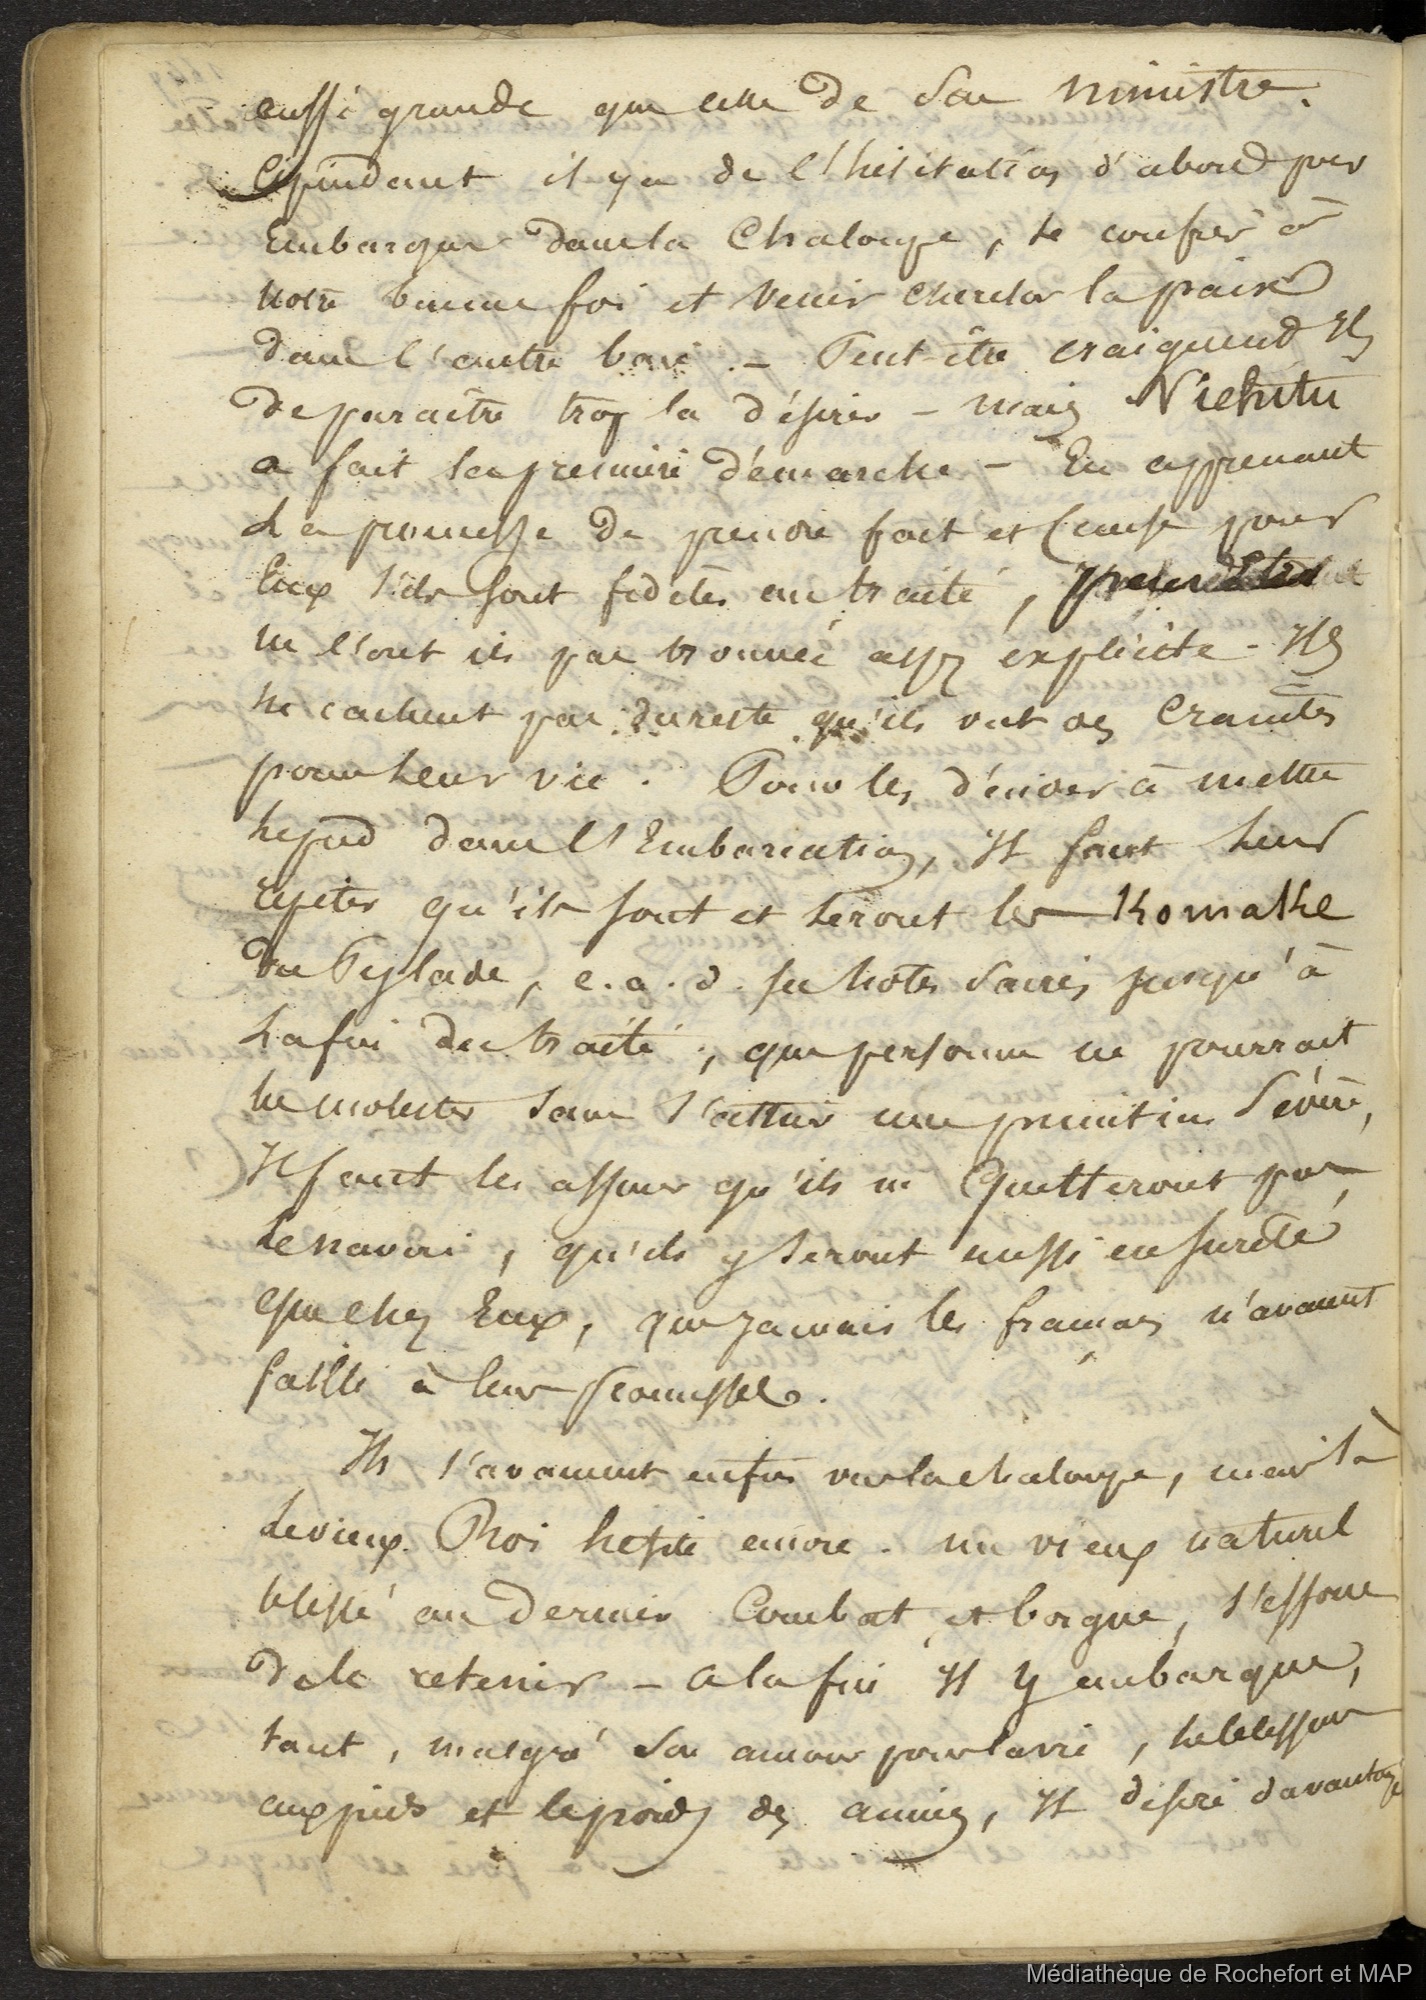 aussi grande que celle de son ministre.
Cependant il y a de l'hésitation d'abord pour
Embarquer dans la Chaloupe, se confier à
notre bonne foi et venir chercher la paix
dans l'autre baie. - Peut-être craignend Ils
de paraître trop la désirer - mais Niehitu
a fait la première démarche - En apprenant
la promesse de prendre fait et Cause pour
Eux s'ils sont fidèles au traité,
ne l'ont ils pas trouvée assez explicite - Ils
ne cachent pas du reste qu'ils ont des Craintes
pour leur vie. Pour les décider à mettre
le pied dans l'Embarcation, Il faut leur
répéter qu'ils sont et seront les Komathe
du Pylade, c.a.d. ses hotes sacrés jusqu'à
la fin du traité, que personne ne pourrait
les molester sans s'attirer une punition Sévère,
Il faut les assurer qu'ils ne Quitteront pas
le navire, qu'ils y seront aussi en sureté
que chez Eux, que jamais les français n'avaient
failli à leur promesse.
Ils s'avancent enfin vers la chaloupe, mais là
le vieux Roi hesite encore. un vieux naturel
blessé au dernier Combat et borgne, s'efforce
de le retenir - a la fin Il y embarque,
tant, malgré son amour pour la vie, la blessure
aux pieds et le poids des années, Il désire davantage